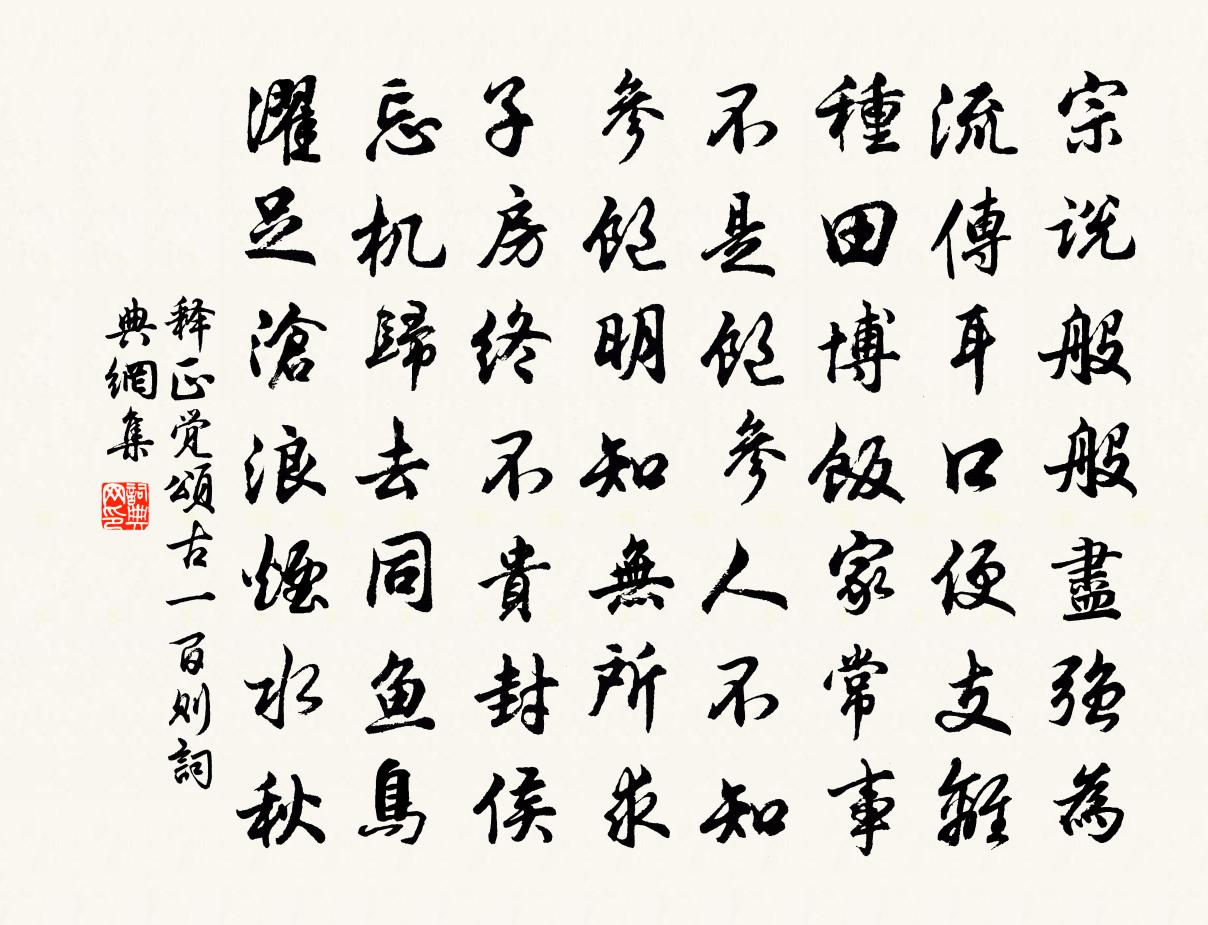 宗说般般盡強為
流傳耳口便支離
種田博飯家常事
不是飽參人不知
參飽明知無所求
子房終不貴封侯
忘机歸去同鱼鳥
濯足滄浪煙水秋
释正觉頌古一百则詞
典網集
詞典
网印